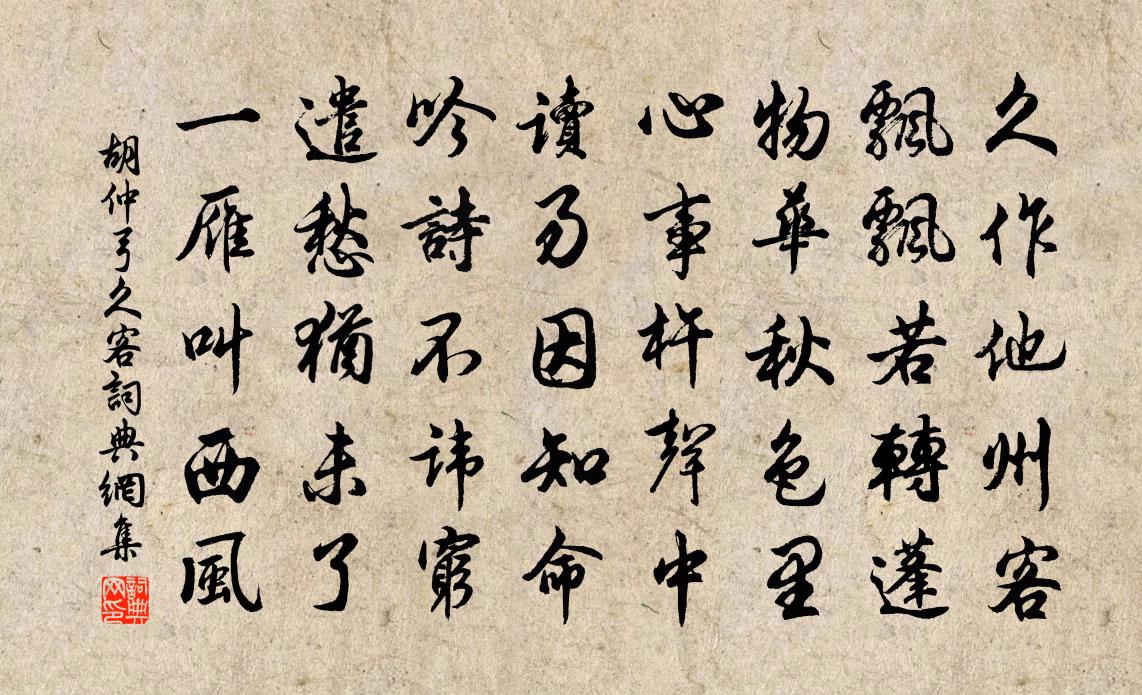 久作他州客
飄飄若轉蓬
物華秋色里
心事杵聲中
讀易因知命
吟詩不諱窮
遣愁猶未了
一雁叫西風
胡仲弓久客詞典網集
詞典网印